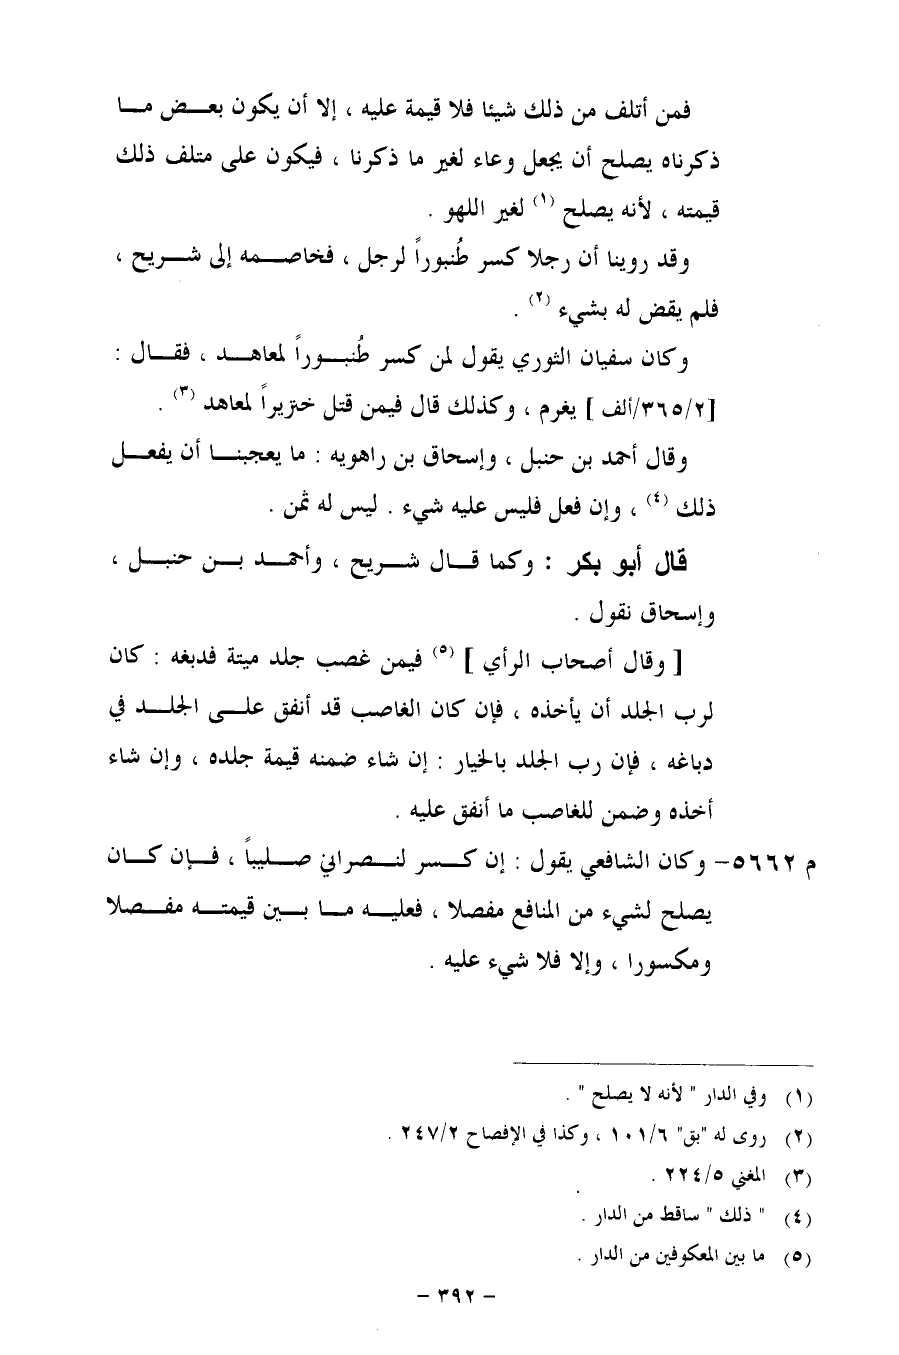 فمن أتلف من ذلك شيئا فلا قيمة عليه ، إلا أن يكون بعض ما
ذكرناه يصلح أن يجعل وعاء لغير ما ذكرنا ، فيكون على متلف ذلك
قيمته ، لأنه يصلح (١) لغير اللهو .
وقد روينا أن رجلا كسر طُنبوراً لرجل ، فخاصمه إلى شريح ،
فلم يقض له بشيء (٢) .
وكان سفيان الثوري يقول لمن كسر طُنبوراً لمعاهد ، فقال :
[٣٦٥/٢/ألف ] يغرم ، وكذلك قال فيمن قتل خنزيراً لمعاهد (٣) .
وقال أحمد بن حنبل ، وإسحاق بن راهويه : ما يعجبنا أن يفعل
ذلك (٤) ، وإن فعل فليس عليه شيء . ليس له ثمن .
قال أبو بكر : وكما قال شريح ، وأحمد بن حنبل ،
وإسحاق نقول .
[ وقال أصحاب الرأي ] (٥) فيمن غصب جلد ميتة فدبغه : كان
لرب الجلد أن يأخذه ، فإن كان الغاصب قد أنفق على الجلد في
دباغه ، فإن رب الجلد بالخيار : إن شاء ضمنه قيمة جلده ، وإن شاء
أخذه وضمن للغاصب ما أنفق عليه .
م ٥٦٦٢- وكان الشافعي يقول : إن كسر لنصراني صليباً ، فإن كان
يصلح لشيء من المنافع مفصلا ، فعليه ما بين قيمته مفصلا
ومكسورا ، وإلا فلا شيء عليه .
(١) وفي الدار " لأنه لا يصلح " .
(٢) روى له "بق" ١٠١/٦ ، وكذا في الإفصاح ٢٤٧/٢ .
(٣) المغني ٢٢٤/٥ .
(٤) " ذلك " ساقط من الدار .
(٥) ما بين المعكوفين من الدار .
- ٣٩٢ -